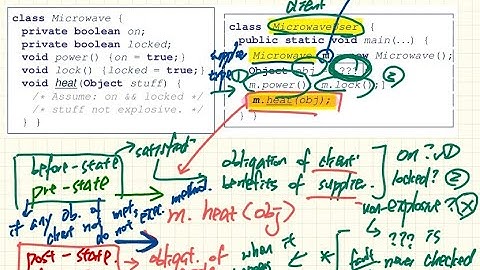 class Microwave {
private boolean on;
private boolean locked;
void power() {on = true;}
void lock() {locked = true;}
void heat(Object stuff) {
/* Assume: on && locked */
/* stuff not explosive. */
} }
client
class MicrowaveUser {
public static void main(...) {
Microwave m = new Microwave();
Object obj = ???;
m.power(); m.lock();
m.heat(obj);
} }
supplier
①
②
before-state
pre-state
satisfied
method.
m. heat (obj)
obligation of client
benefits of supplier.
on? ①
locked? ②
non-explosive?
if any ob. of
client not
met,
do not
exec.
??? is
never checked
post-state
obligat. of
when it
fails